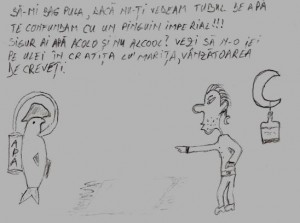 SĂ-MI BAG PULA, DACĂ NU-ȚI VEDEAM TUBUL DE APĂ
TE CONFUNDAM CU UN PINGUIN IMPERIAL!!!
SIGUR AI APĂ ACOLO ȘI NU ALCOOL? VEZI SĂ N-O IEI
PE ULEI ÎN CRATIȚA LU' MARIȚA, VÂNZĂTOAREA
DE CREVEȚI.
APĂ